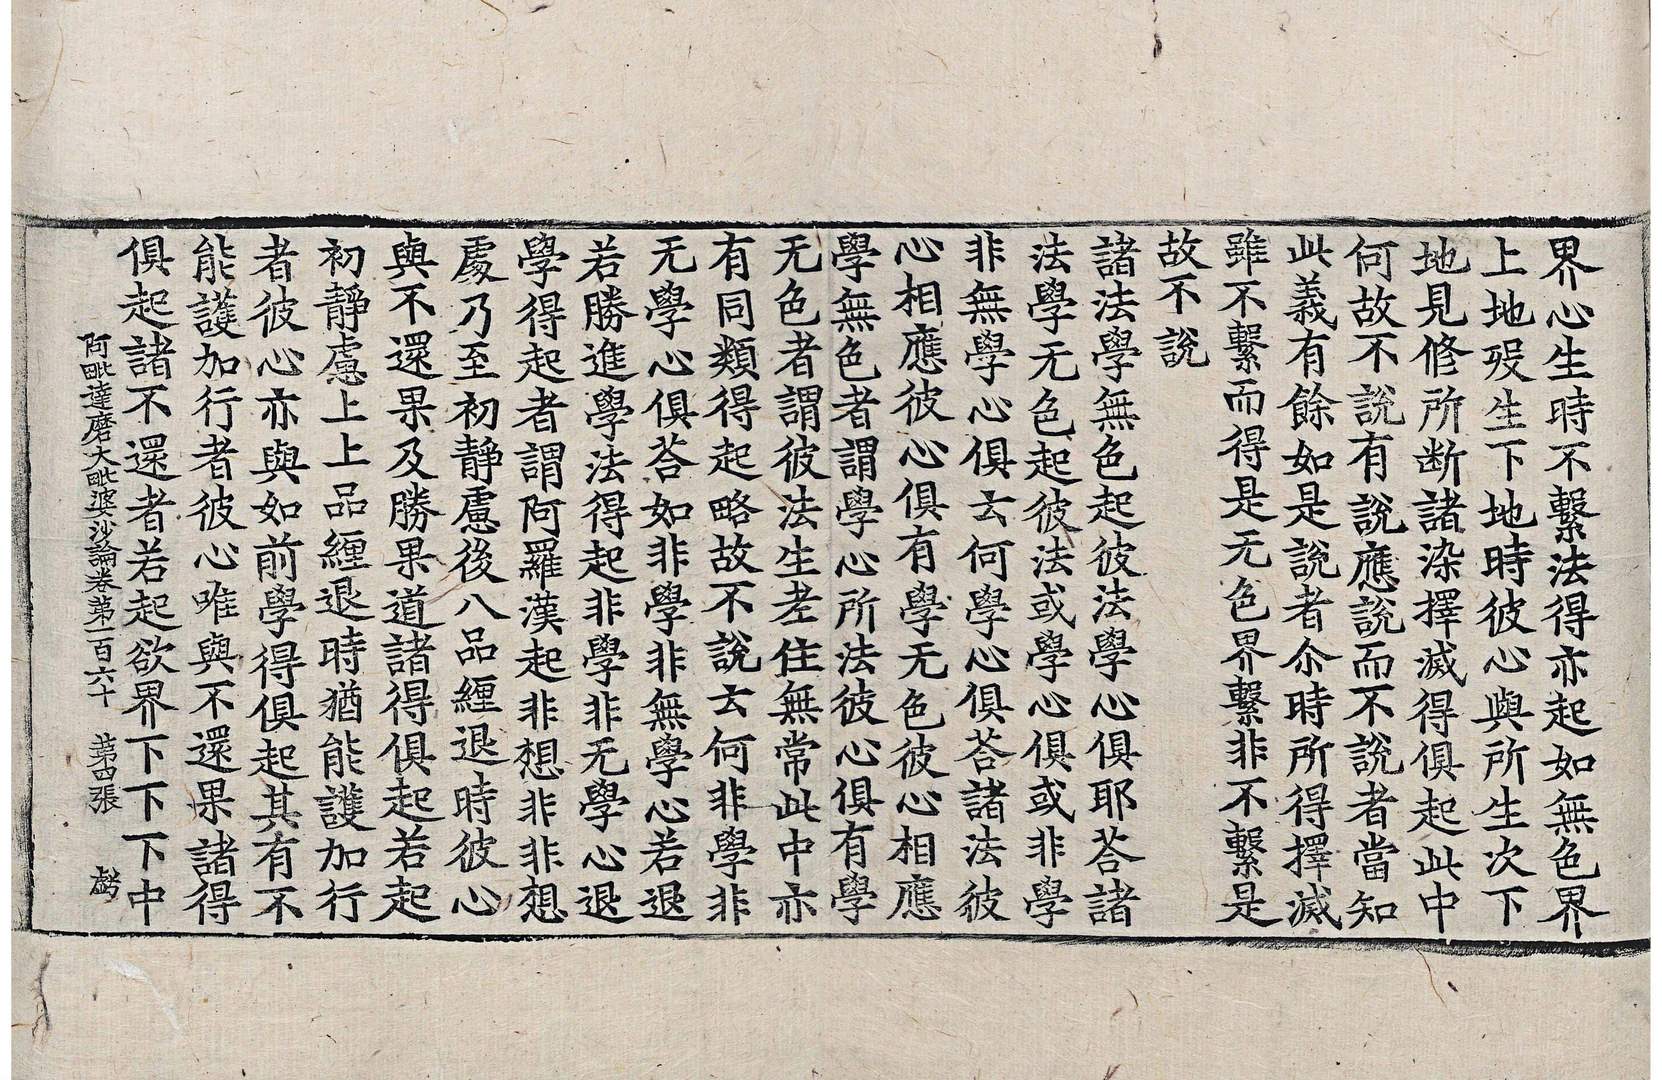 界心生時不繫法得亦起如無色界
上地歿生下地時彼心與所生次下
地見修所断諸染擇滅得俱起此中
何故不說有說應說而不說者當知
此義有餘如是說者尒時所得擇滅
雖不繫而得是无色界繫非不繫是
故不說
諸法學無色起彼法學心俱耶荅諸
法學无色起彼法或學心俱或非學
非無學心俱云何學心俱荅諸法彼
心相應彼心俱有學无色彼心相應
學無色者謂學心所法彼心俱有學
无色者謂彼法生老住無常此中亦
有同類得起略故不說云何非學非
无學心俱荅如非學非無學心若退
若勝進學法得起非學非无學心退
學得起者謂阿羅漢起非想非非想
處乃至初靜慮後八品纏退時彼心
與不還果及勝果道諸得俱起若起
初靜慮上上品纏退時猶能護加行
者彼心亦與如前學得俱起其有不
能護加行者彼心唯與不還果諸得
俱起諸不還者若起欲界下下下中
阿毗達磨大毗婆沙論卷第一百六十 第四張 虧